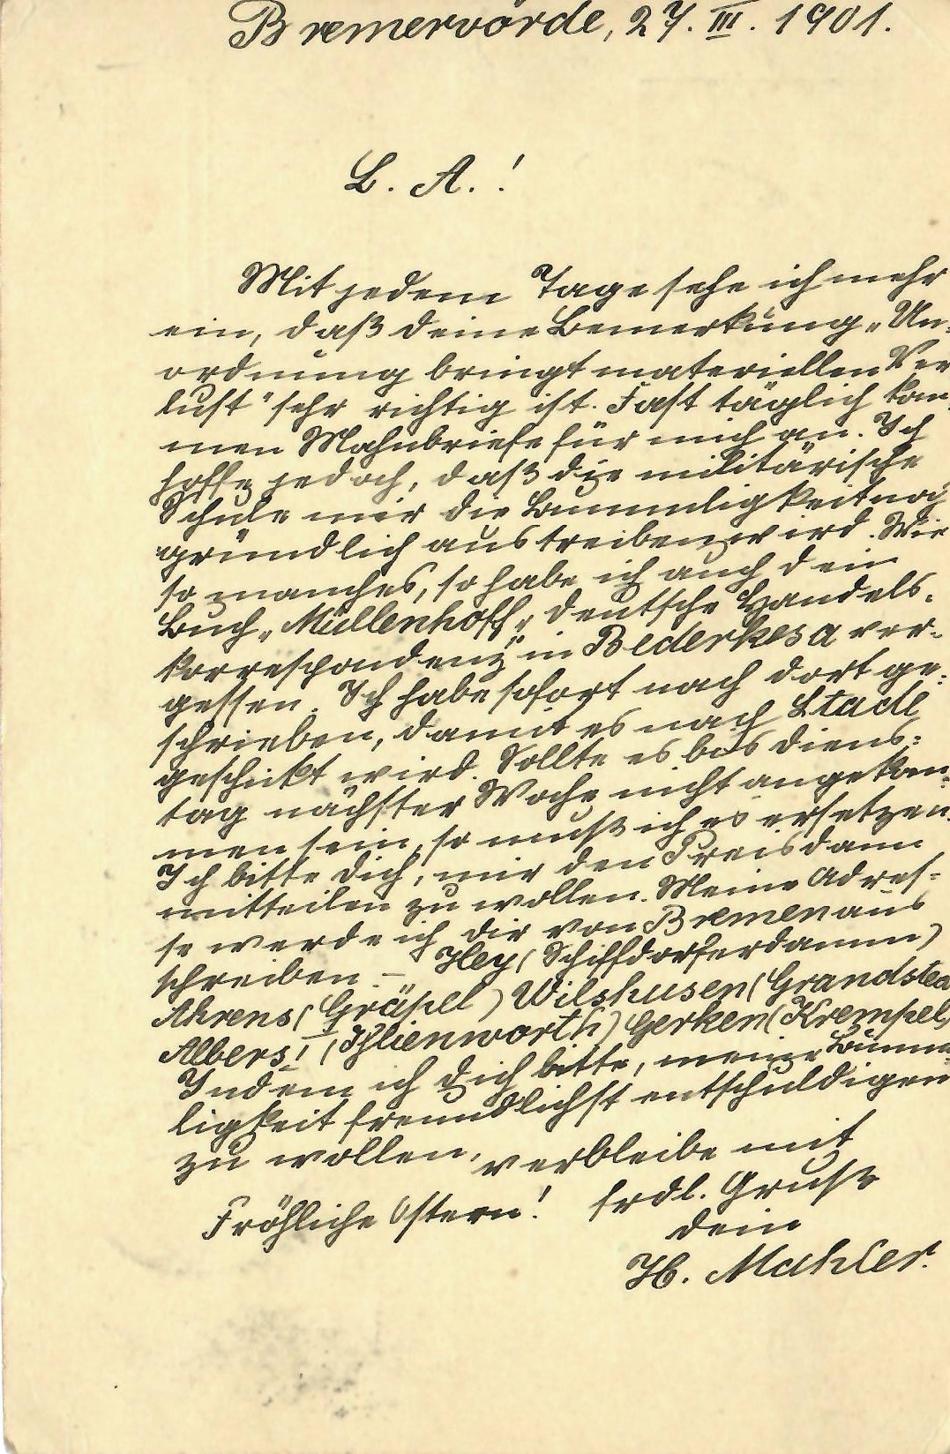 Bremervörde, 27. III. 1901.
L. A.!
Mit jedem Tage sehe ich mehr
ein, daß deine Bemerkung „Un-
ordnung bringt materiellen Ver
lust" sehr richtig ist. Fast täglich kom
men Mahnbriefe für mich an. Ich
hoffe jedoch, daß die militärische
Schule mir die Bummligkeit noch
gründlich austreiben wird. Wie
so manches, so habe ich auch dein
Buch „Müllenhoff, deutsche Handels-
korrespondenz" in Bederkesa ver-
gessen. Ich habe sofort nach dort ge-
schrieben, damit es nach Stade
geschickt wird. Sollte es bis Diens-
tag nächster Woche nicht angekom
men sein, so muß ich es ersetzen.
Ich bitte dich, mir den Preis dann
mitteilen zu wollen. Meine Adres-
se werde ich dir von Bremen aus
schreiben. – Hey (Schiffdorferdamm)
Ahrens (Gräpel) Wilshusen (Grandsted
Albers! (Ihlienworth) Gerken (Krempel
Indem ich dich bitte, meine Bumm-
ligkeit freundlichst entschuldigen
zu wollen, verbleibe mit
Fröhliche Ostern! frdl. Gruß
dein
H. Mahler.